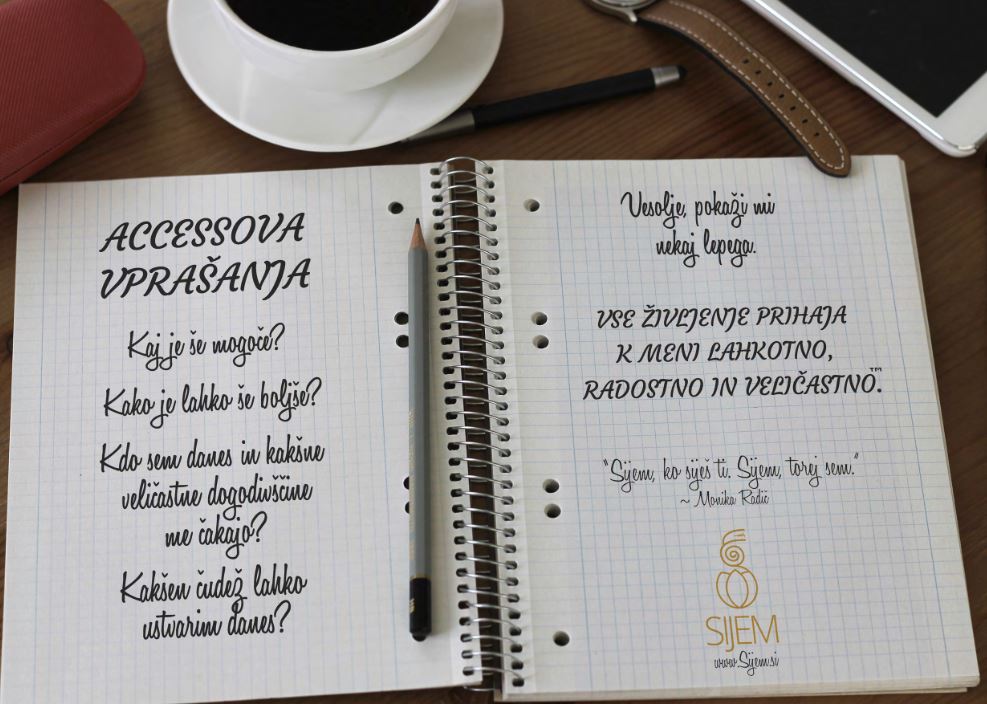 ACCESSOVA
VPRAŠANJA
Kaj je še mogoče?
Kako je lahko še boljše?
Kdo sem danes in kakšne
veličastne dogodivščine
me čakajo?
Kakšen čudež lahko
ustvarim danes?
Vesolje, pokaži mi
nekaj lepega.
VSE ŽIVLJENJE PRIHAJA
K MENI LAHKOTNO,
RADOSTNO IN VELIČASTNO.™
"Sijem, ko siješ ti. Sijem, torej sem."
~ Monika Radić
SIJEM
www.Sijem.si